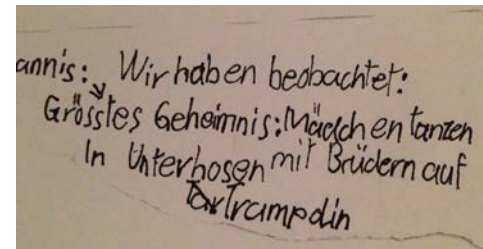 annis: Wir haben beobachtet:
Grösstes Geheimnis: Mädchen tanzen
In Unterhosen mit Brüdern auf
Trampolin